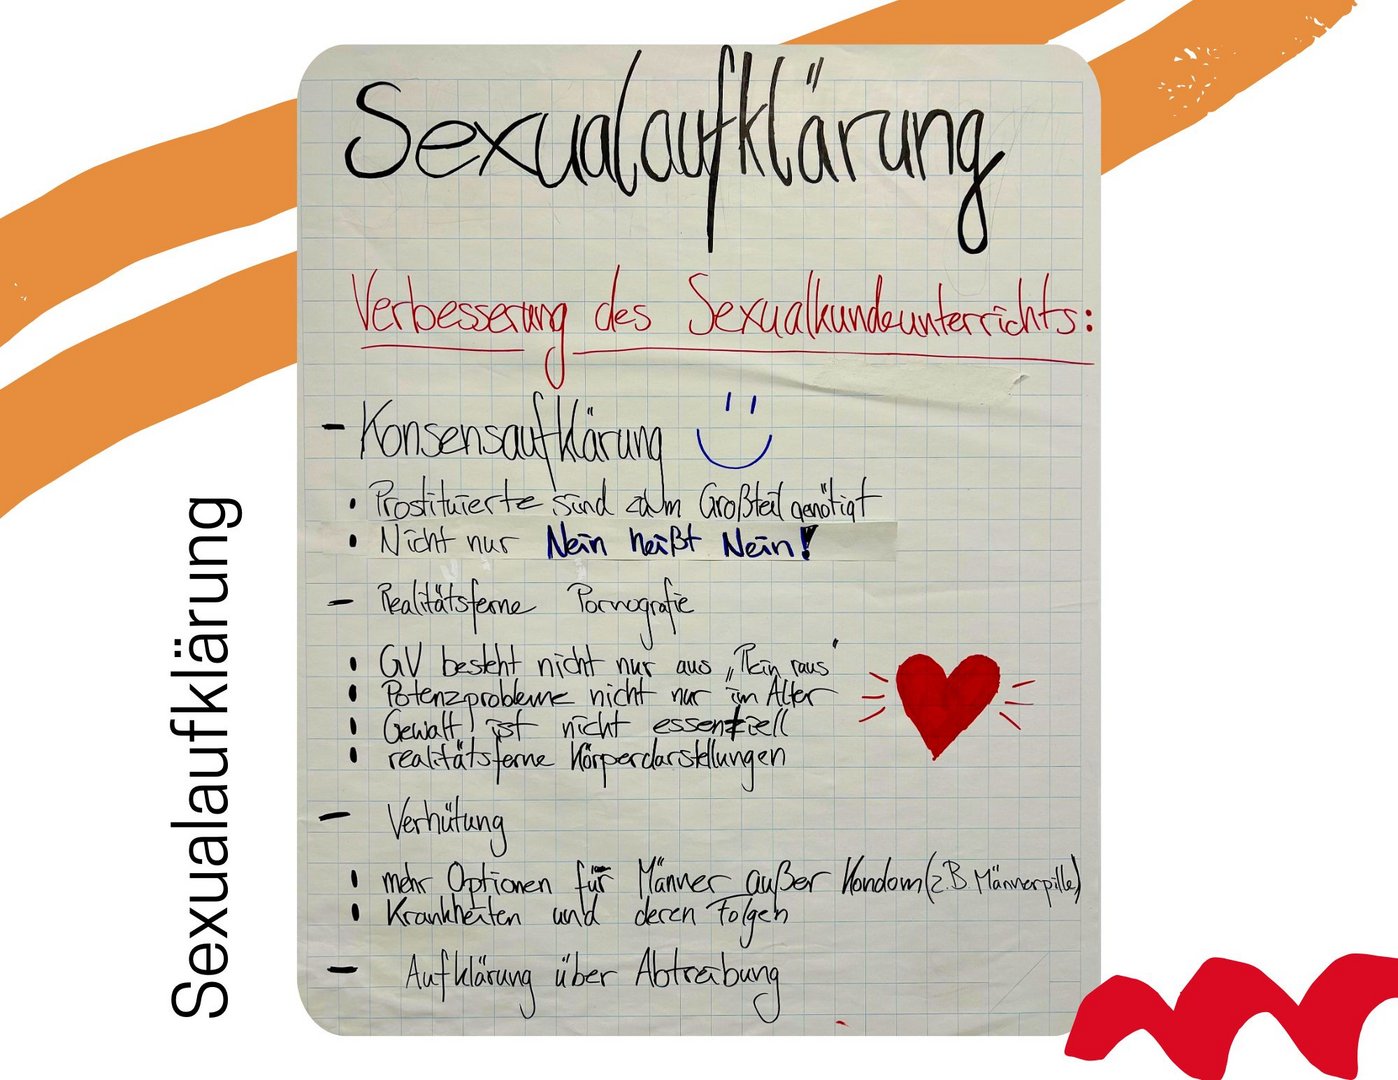 Sexualaufklärung
Sexualaufklärung
Verbesserung des Sexualkundeunterrichts:
- Konsensaufklärung
• Prostituierte sind zum Großteil genötigt
• Nicht nur Nein heißt Nein!
- Realitätsferne Pornografie
• GV besteht nicht nur aus „Rein raus“
• Potenzprobleme nicht nur im Alter
• Gewalt ist nicht essenziell
• realitätsferne Körperdarstellungen
- Verhütung
• mehr Optionen für Männer außer Kondom (z.B. Männerpille)
• Krankheiten und deren Folgen
- Aufklärung über Abtreibung